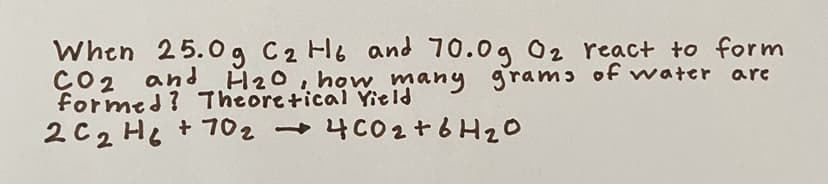 When 25.0g C2H6 and 70.0g O2 react to form
CO2 and H2O, how many grams of water are
formed? Theoretical Yield
2C2H6 + 7O2 → 4CO2 + 6H2O